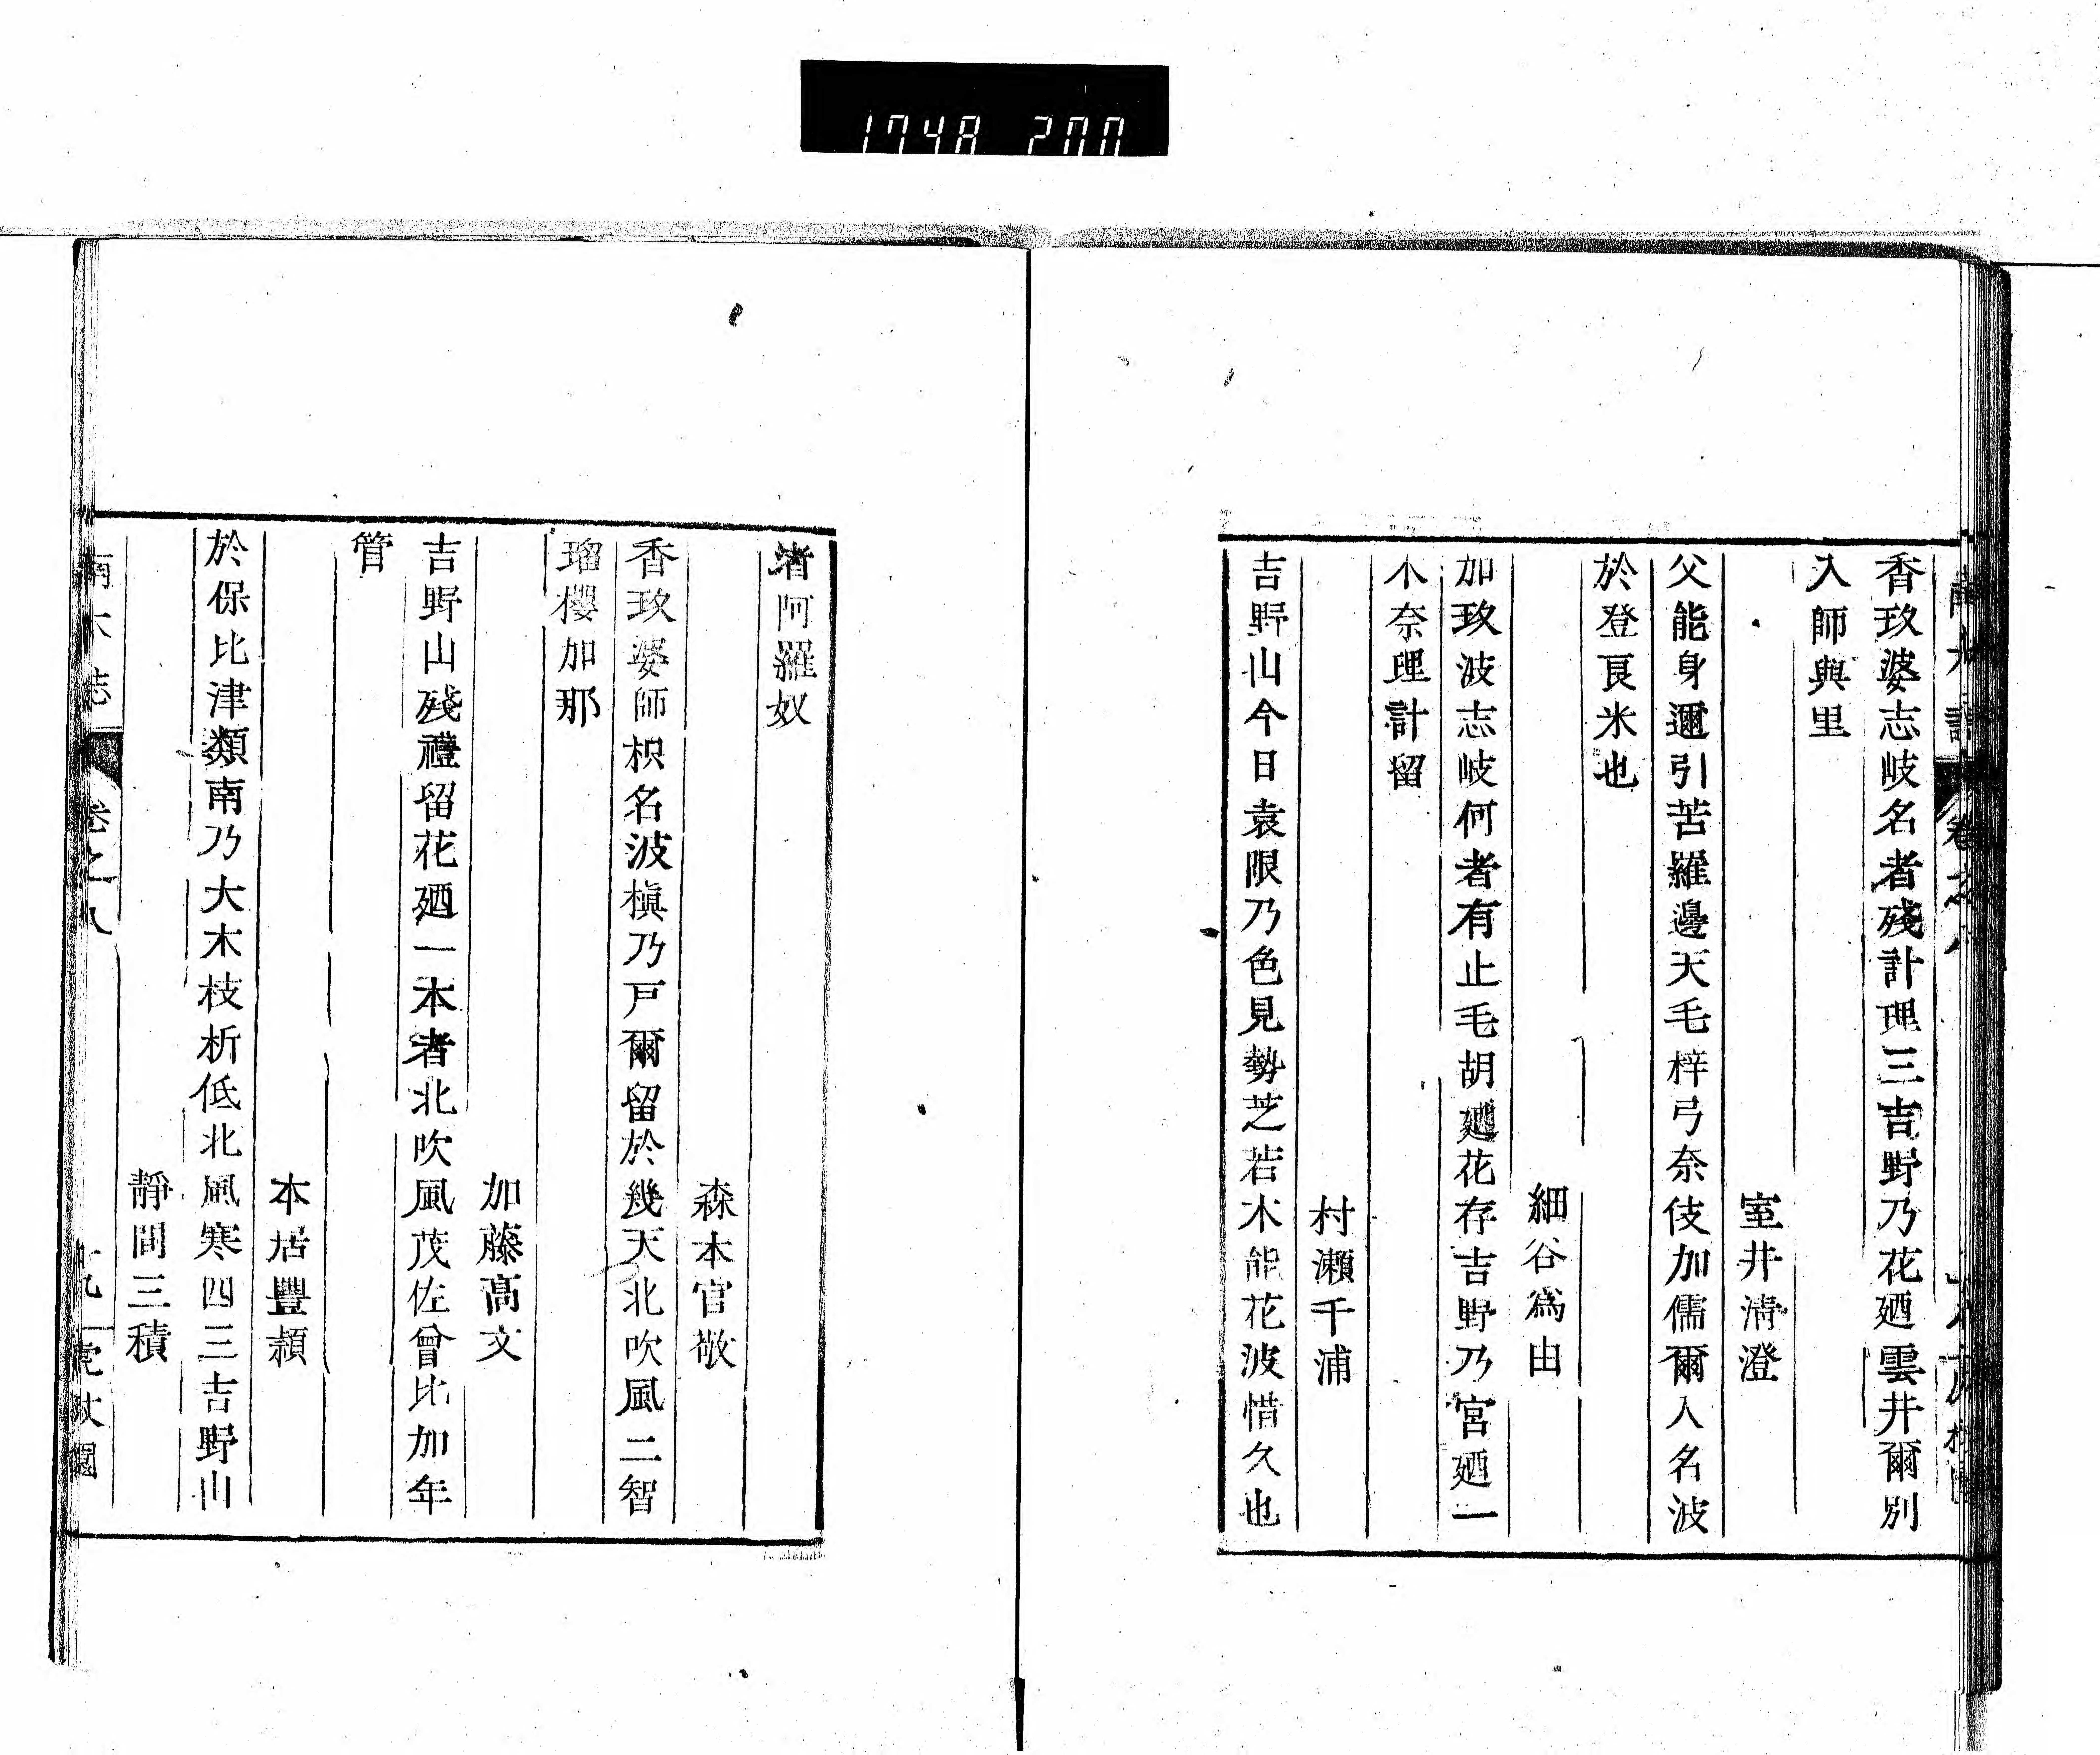 1748 200
香玖婆志岐名者殘計理三吉野乃花廼雲井爾別
入師與里
室井淸澄
父能身邇引苦羅邊天毛梓弓奈伎加儒爾人名波
於登良米也
細谷爲由
加玖波志岐何者有止毛胡廼花存吉野乃宮廼一
木奈理計留
村瀨千浦
吉野山今日袁限乃色見勢芝若木能花波惜久也
渚阿羅奴
森本官敬
香玖婆師枳名波槇乃戸爾留於幾天北吹風二智
瑠櫻加那
加藤高文
吉野山殘禮留花廼一本者北吹風茂佐曾比加年
管
本居豐穎
於保比津類南乃大木枝析低北風寒四三吉野山
靜間三積
南木誌 卷之八